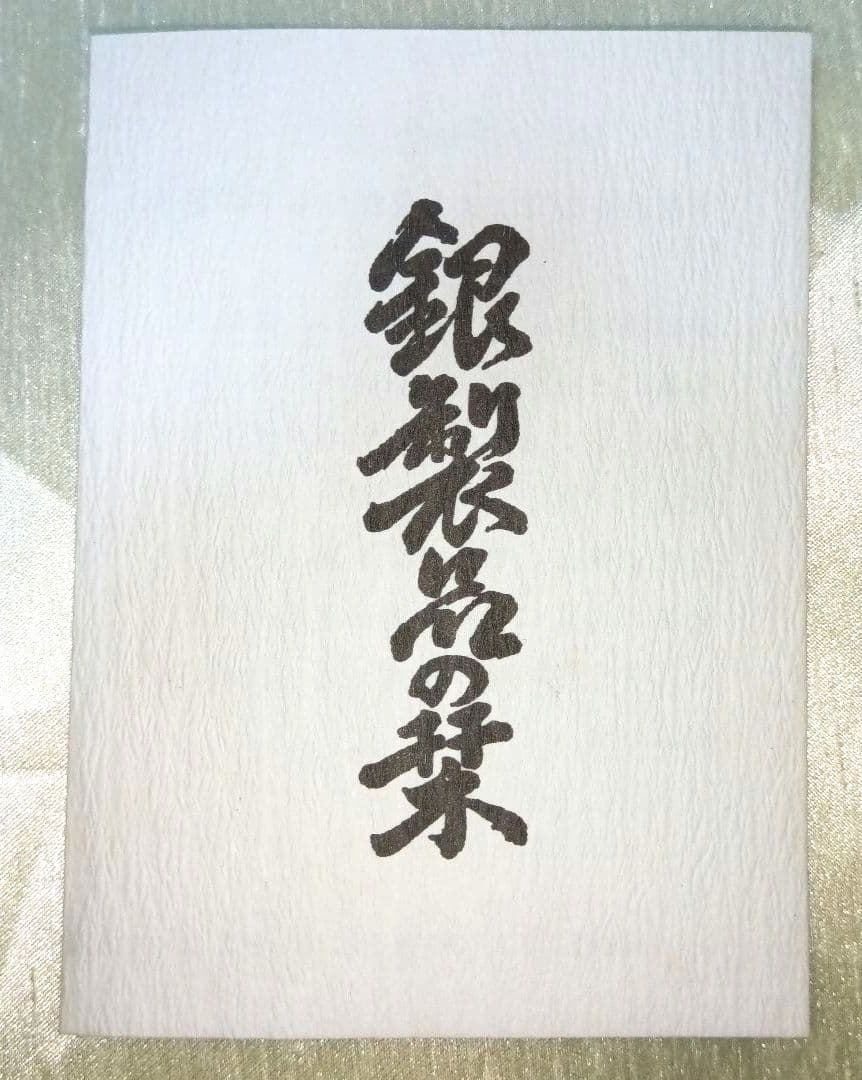 銀製品の栞